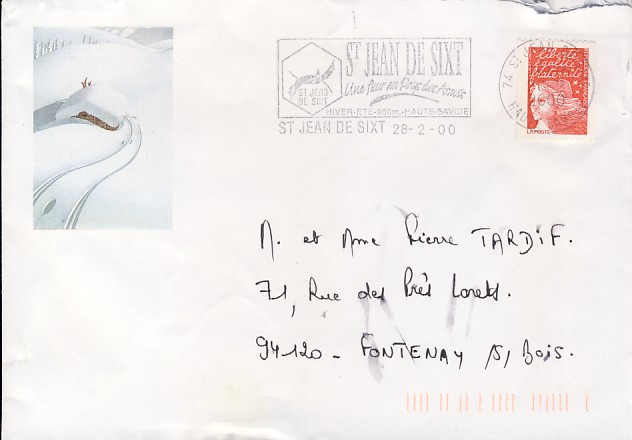 ST JEAN DE SIXT
Une fleur au Pays des Aravis
ST JEAN
DE SIXT
HIVER-ETE-960m.-HAUTE-SAVOIE
ST JEAN DE SIXT 28-2-00
74 ST JEAN DE
liberté
égalité
fraternité
LA POSTE
M. et Mme Pierre TARDIF.
71, Rue des Prés Lorets.
94120 - FONTENAY /S/ Bois.